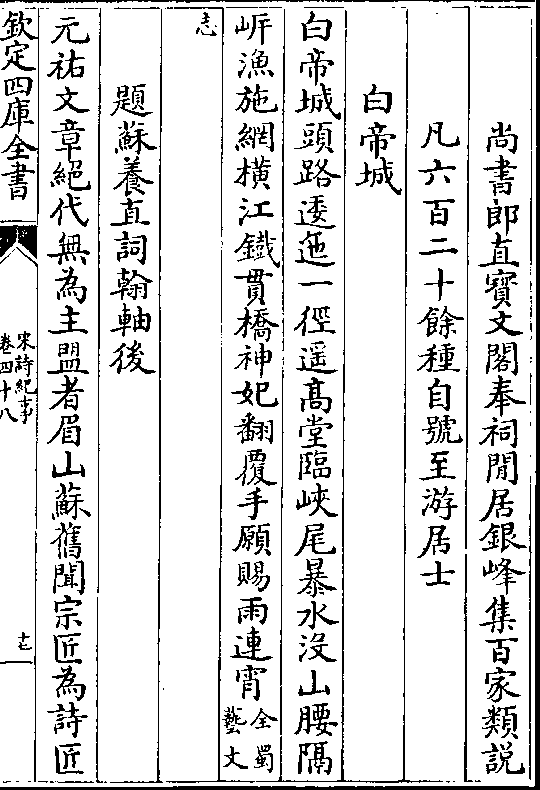 尚書郎直寶文閣奉祠閒居銀峰集百家類說
凡六百二十餘種自號至游居士
白帝城
白帝城頭路逶迤一徑遥髙堂臨峽尾暴水沒山腰隔
㟁漁施網橫江鐵貫橋神妃翻覆手願賜雨連宵全蜀藝文
志
題蘇養直詞翰軸後
元祐文章絕代無為主盟者眉山蘇舊聞宗匠為詩匠
欽定四庫全書
宋詩紀事
卷四十八
十七